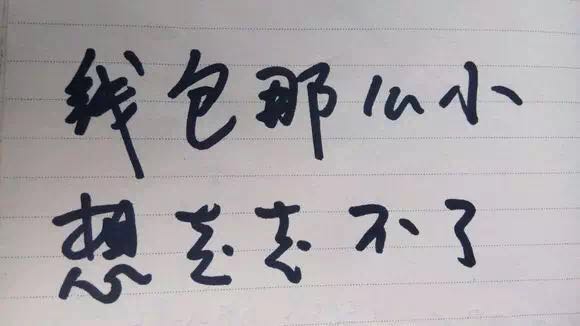 钱包那么小
想去去不了